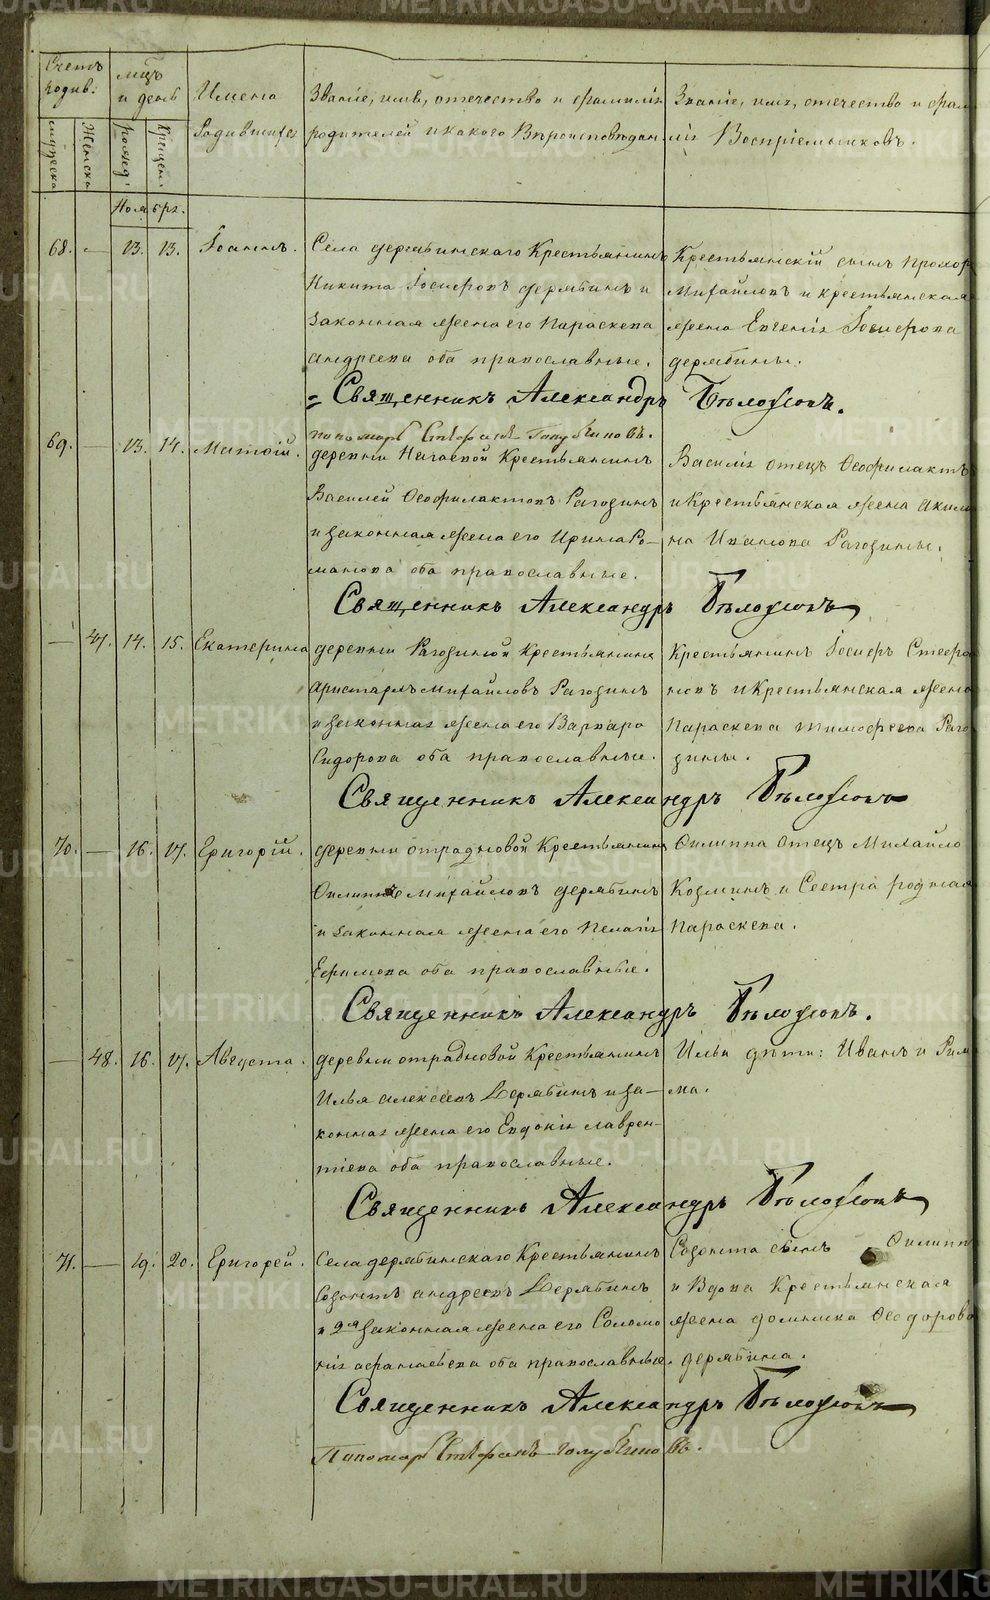 METRIKI.GASO-URAL.RU
Счетъ родив:
мужеска
Женска
мѣцъ и день
рожд:
Крещен:
Имена Родившихся
Званіе, имя, отечество и фамилія
родителей и какого Вѣроисповѣдан
Званіе, имя, отечество и фами
лія Воспріемниковъ.
Ноябрь.
68. — 13. 13. Іоаннъ.
Села дерябинскаго Крестьянинъ
Никита Іосифовъ дерябинъ и
законная жена его Параскева
андреева оба православные.
Крестьянскій сынъ Прохор
Михайловъ и крестьянская
жена Евгенія Іосифова
дерябины.
= Священникъ Александръ Бѣлоусовъ.
пономарь Стефанъ Голубчиковъ.
69. — 13. 14. Матѳій.
деревни Нагаевой Крестьянинъ
Василей Ѳеофилактовъ Рагозинъ
и законная жена его Ирина Ро-
манова оба православные.
Василія отецъ Ѳеофилактъ
и Крестьянская жена Акили
на Иванова Рагозины.
Священникъ Александръ Бѣлоусовъ
— 47. 14. 15. Екатерина
деревни Рагозиной Крестьянинъ
Аристархъ Михайловъ Рагозинъ
и законная жена его Варвара
Сидорова оба православные.
Крестьянинъ Іосифъ Стефа
новъ и Крестьянская жена
Параскева тимофеева Раго
зины.
Священникъ Александръ Бѣлоусовъ
70. — 16. 17. Григорій.
деревни отрадновой Крестьянинъ
Филиппъ михайловъ дерябинъ
и законная жена его Пелагія
Ефимова оба православные.
Филиппа отецъ Михайло
Козминъ и Сестра родная
Параскева.
Священникъ Александръ Бѣлоусовъ.
— 48. 16. 17. Августа.
деревни отрадновой Крестьянинъ
Илья алексѣевъ Дерябинъ и за-
конная жена его Евдокія лаврен-
тіева оба православные.
Ильи дѣти: Иванъ и Рим
ма.
Священникъ Александръ Бѣлоусовъ
71. — 19. 20. Григорей.
Села дерябинскаго Крестьянинъ
Созонтъ андреевъ Дерябинъ
и 2я законная жена его Соломо
нія афанасьева оба православные.
Созонта сынъ Филипп
и Вдова Крестьянская
жена домника Ѳеодорова
дерябина.
Священникъ Александръ Бѣлоусовъ
Пономарь Стефанъ Голубчиковъ.